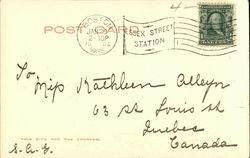 POSTCARD
BOSTON
JAN
2-30P
MASS.
ESSEX STREET
STATION.
To
Miss Kathleen Alleyn
63 St Louis St
Quebec
Canada
THIS SIDE FOR THE ADDRESS.